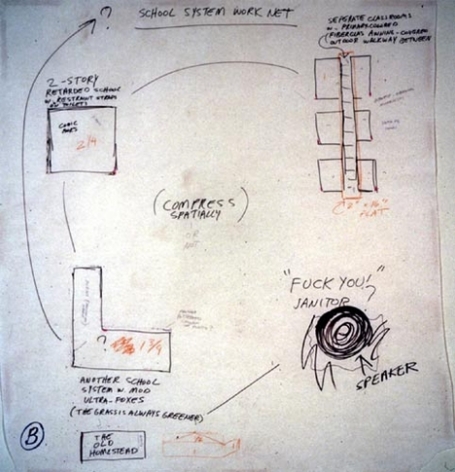 ?
SCHOOL SYSTEM WORK NET
SEPARATE CLASSROOMS
W. PRIMARY-COLORED
FIBERGLASS AWNING-COVERED
OUTDOOR WALKWAY BETWEEN
2-STORY
RETARDED SCHOOL
W. RESTRAINT STRAPS
ON TOILETS
COMIC
2/9
(COMPRESS
SPATIALLY)
OR
NOT
FLAT
"FUCK YOU!"
JANITOR
SPEAKER
?
1 3/4
ANOTHER SCHOOL
SYSTEM W. MOD
ULTRA-FOXES
(THE GRASS IS ALWAYS GREENER)
B
THE
OLD
HOMESTEAD